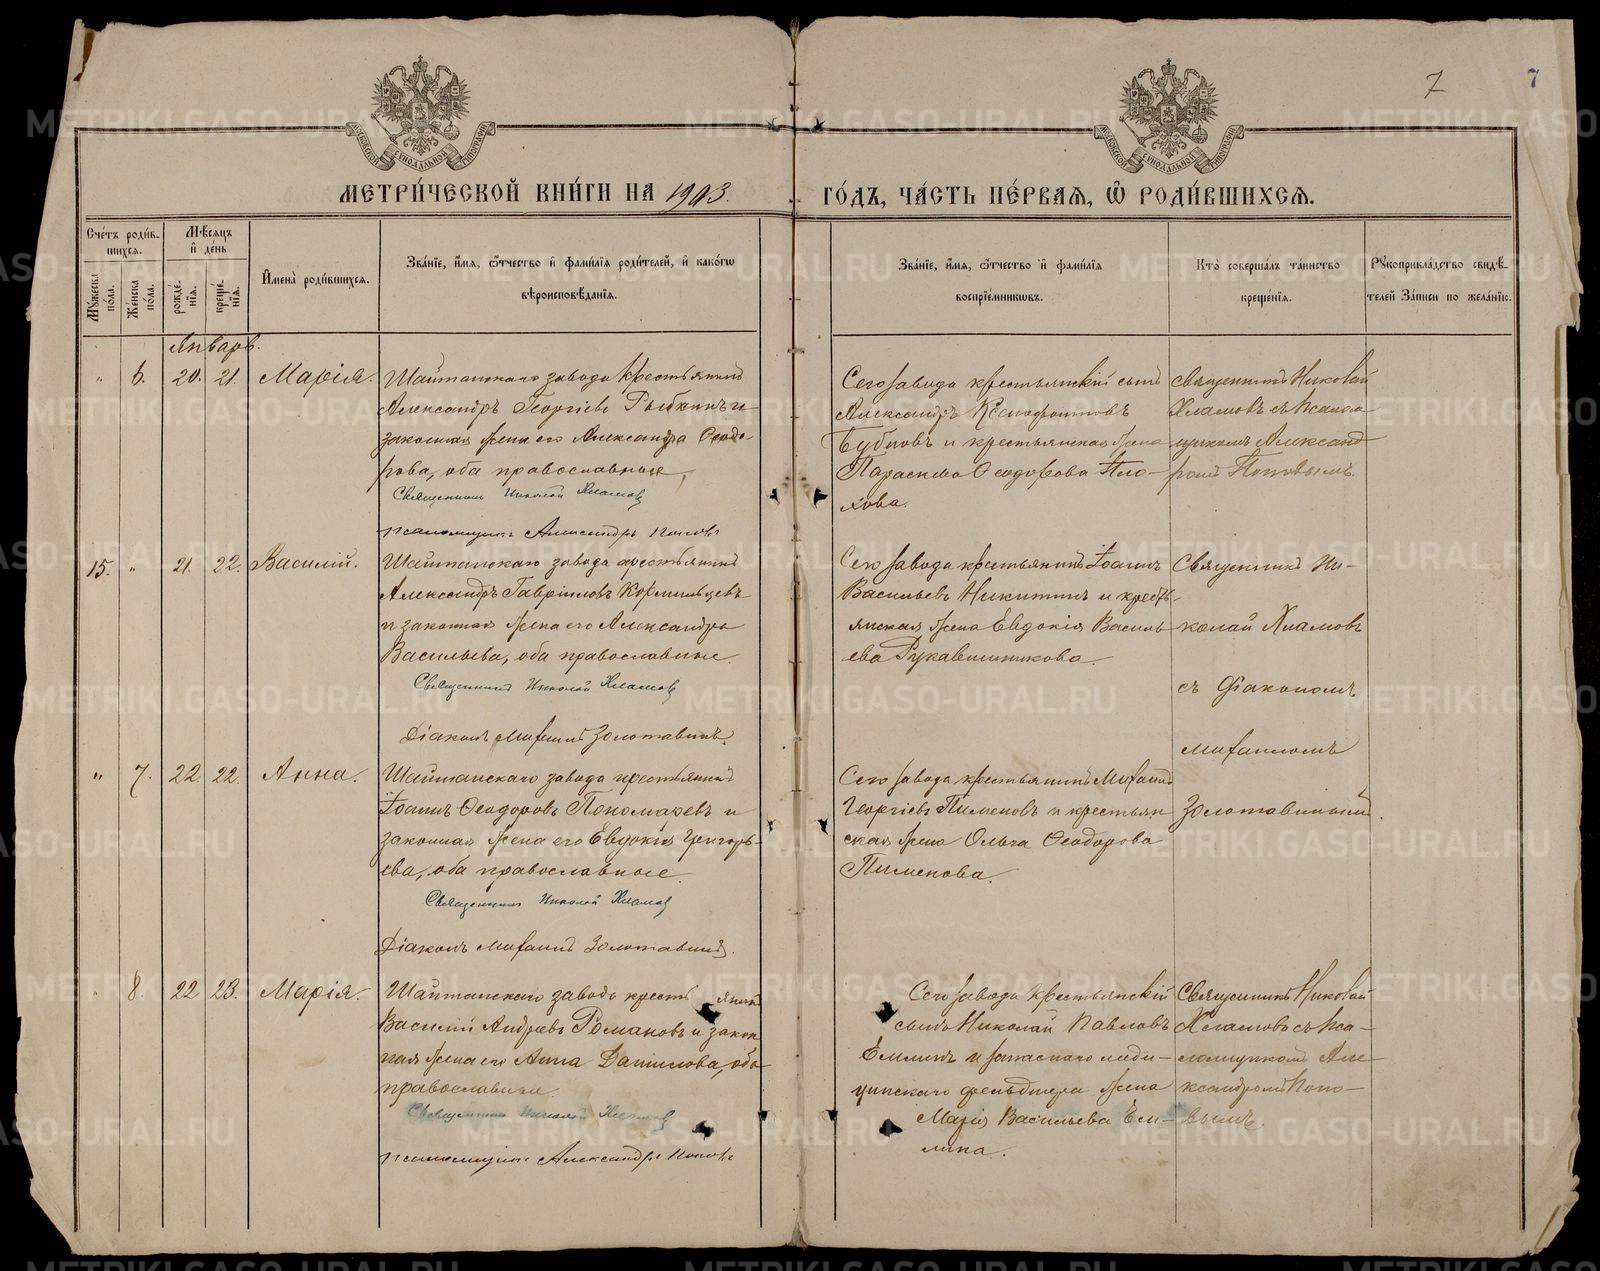 7
7
МОСКОВСКОЙ СѴНОДАЛЬНОЙ ТИПОГРАФІИ
МОСКОВСКОЙ СѴНОДАЛЬНОЙ ТИПОГРАФІИ
МЕТРИ́ЧЕСКОЙ КНИ́ГИ НА 1903.
ГО́ДЪ, ЧА́СТЬ ПЕ́РВАЯ, Ѽ РОДИ́ВШИХСЯ.
Сче́тъ роди́в-
шихся.
Мꙋ́жеска по́ла.
Же́нска по́ла.
Мѣ́сяцъ
и҆ де́нь
рожде́-
нїя.
креще́-
нїя.
И҆мена̀ роди́вшихся.
Зва́нїе, и҆́мя, ѻ҆́тчество и҆ фами́лїя роди́телей, и҆ како́гѡ
вѣроисповѣ́данїя.
Зва́нїе, и҆́мя, ѻ҆́тчество и҆ фами́лїя
воспрїе́мниковъ.
Кто̀ соверша́лъ та́инство
креще́нїя.
Рꙋкоприкла́дство свидѣ́-
телей За́писи по жела́нїю.
Январь.
" 6. 20. 21. Марія.
Шайтанскаго завода крестьянинъ
Александръ Георгіевъ Рыбкинъ и
законная жена его Александра Ѳеодо-
рова, оба православные
Священникъ Николай Хламов
псаломщикъ Александръ Поповъ
Сего завода крестьянскій сынъ
Александръ Ксенофонтовъ
Бубновъ и крестьянская жена
Параскева Ѳеодорова Пло-
хова.
Священникъ Николай
Хламовъ съ псалом-
щикомъ Александ
ромъ Поповымъ.
15. " 21. 22. Василій.
Шайтанскаго завода крестьянинъ
Александръ Гавріиловъ Кормильцевъ
и законная жена его Александра
Васильева, оба православные.
Священникъ Николай Хламов
Діаконъ Михаилъ Золотавинъ.
Сего завода крестьянинъ Іоаннъ
Васильевъ Никитинъ и кресть-
янская жена Евдокія Василь
ева Рукавишникова.
Священникъ Ни-
колай Хламовъ
съ діакономъ
Михаиломъ
Золотавинымъ.
" 7. 22. 22. Анна.
Шайтанскаго завода крестьянинъ
Іоаннъ Ѳеодоровъ Пономаревъ и
законная жена его Евдокія Григорь-
ева, оба православные.
Священникъ Николай Хламов
Діаконъ Михаилъ Золотавинъ.
Сего завода крестьянинъ Михаилъ
Георгіевъ Пименовъ и крестьян
ская жена Ольга Ѳеодорова
Пименова.
8. 22 23. Марія.
Шайтанскаго завода крестьянинъ
Василій Андреевъ Романовъ и закон
ная жена его Анна Данилова, оба
православные.
Священникъ Николай Хламов
псаломщикъ Александръ Поповъ
Сего завода крестьянскій
сынъ Николай Павловъ
Емлинъ и запаснаго меди-
цинскаго фельдшера жена
Марія Васильева Ем-
лина.
Священникъ Николай
Хламовъ съ пса-
ломщикомъ Але
ксандромъ Попо-
вымъ
METRIKI.GASO-URAL.RU